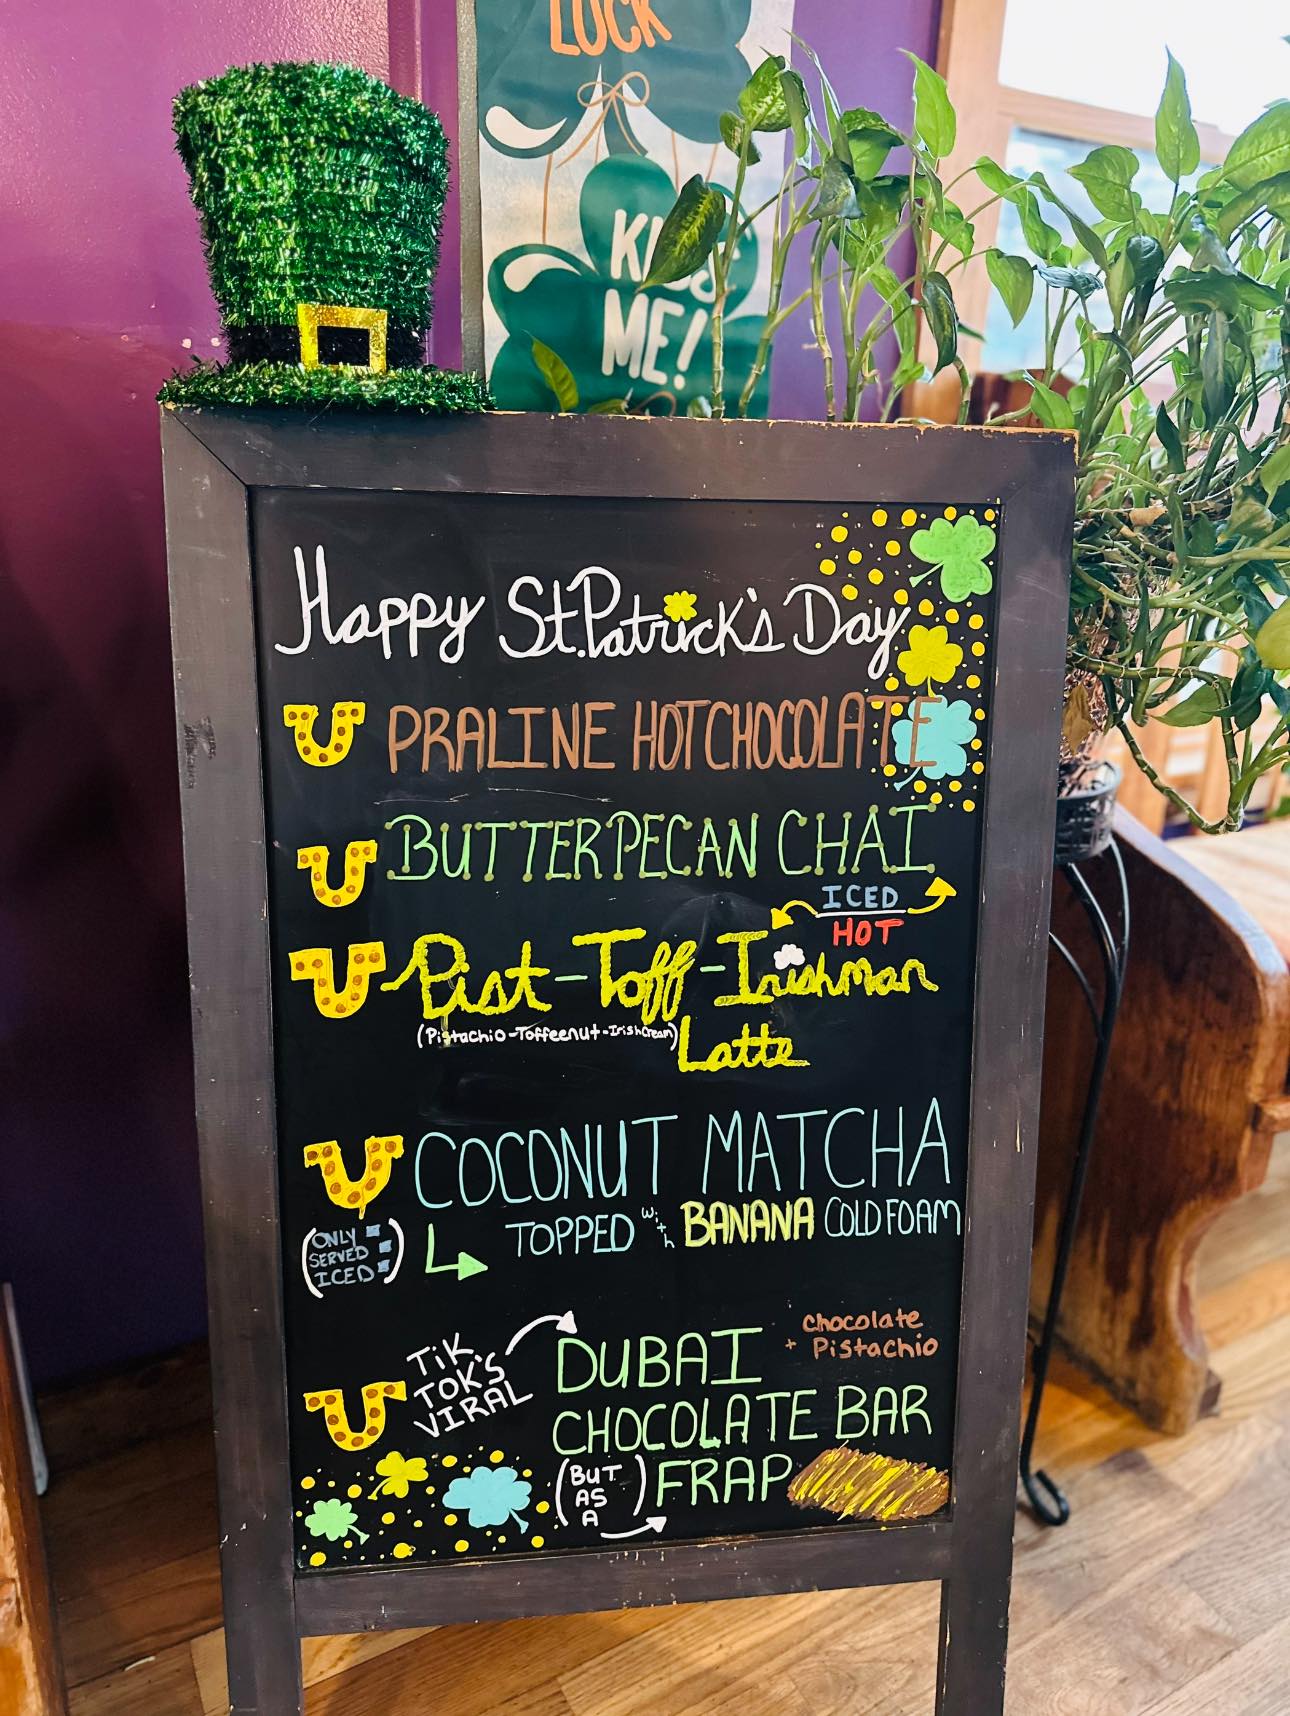 LUCK
KISS
ME!
Happy St. Patrick's Day
PRALINE HOT CHOCOLATE
BUTTER PECAN CHAI
ICED
HOT
Pist-Toff-Irishman
(Pistachio-Toffeenut-Irish Cream)
Latte
COCONUT MATCHA
TOPPED with BANANA COLD FOAM
(ONLY
SERVED
ICED)
TiK
TOK'S
VIRAL
DUBAI
Chocolate
+ Pistachio
CHOCOLATE BAR
(BUT
AS
A)
FRAP